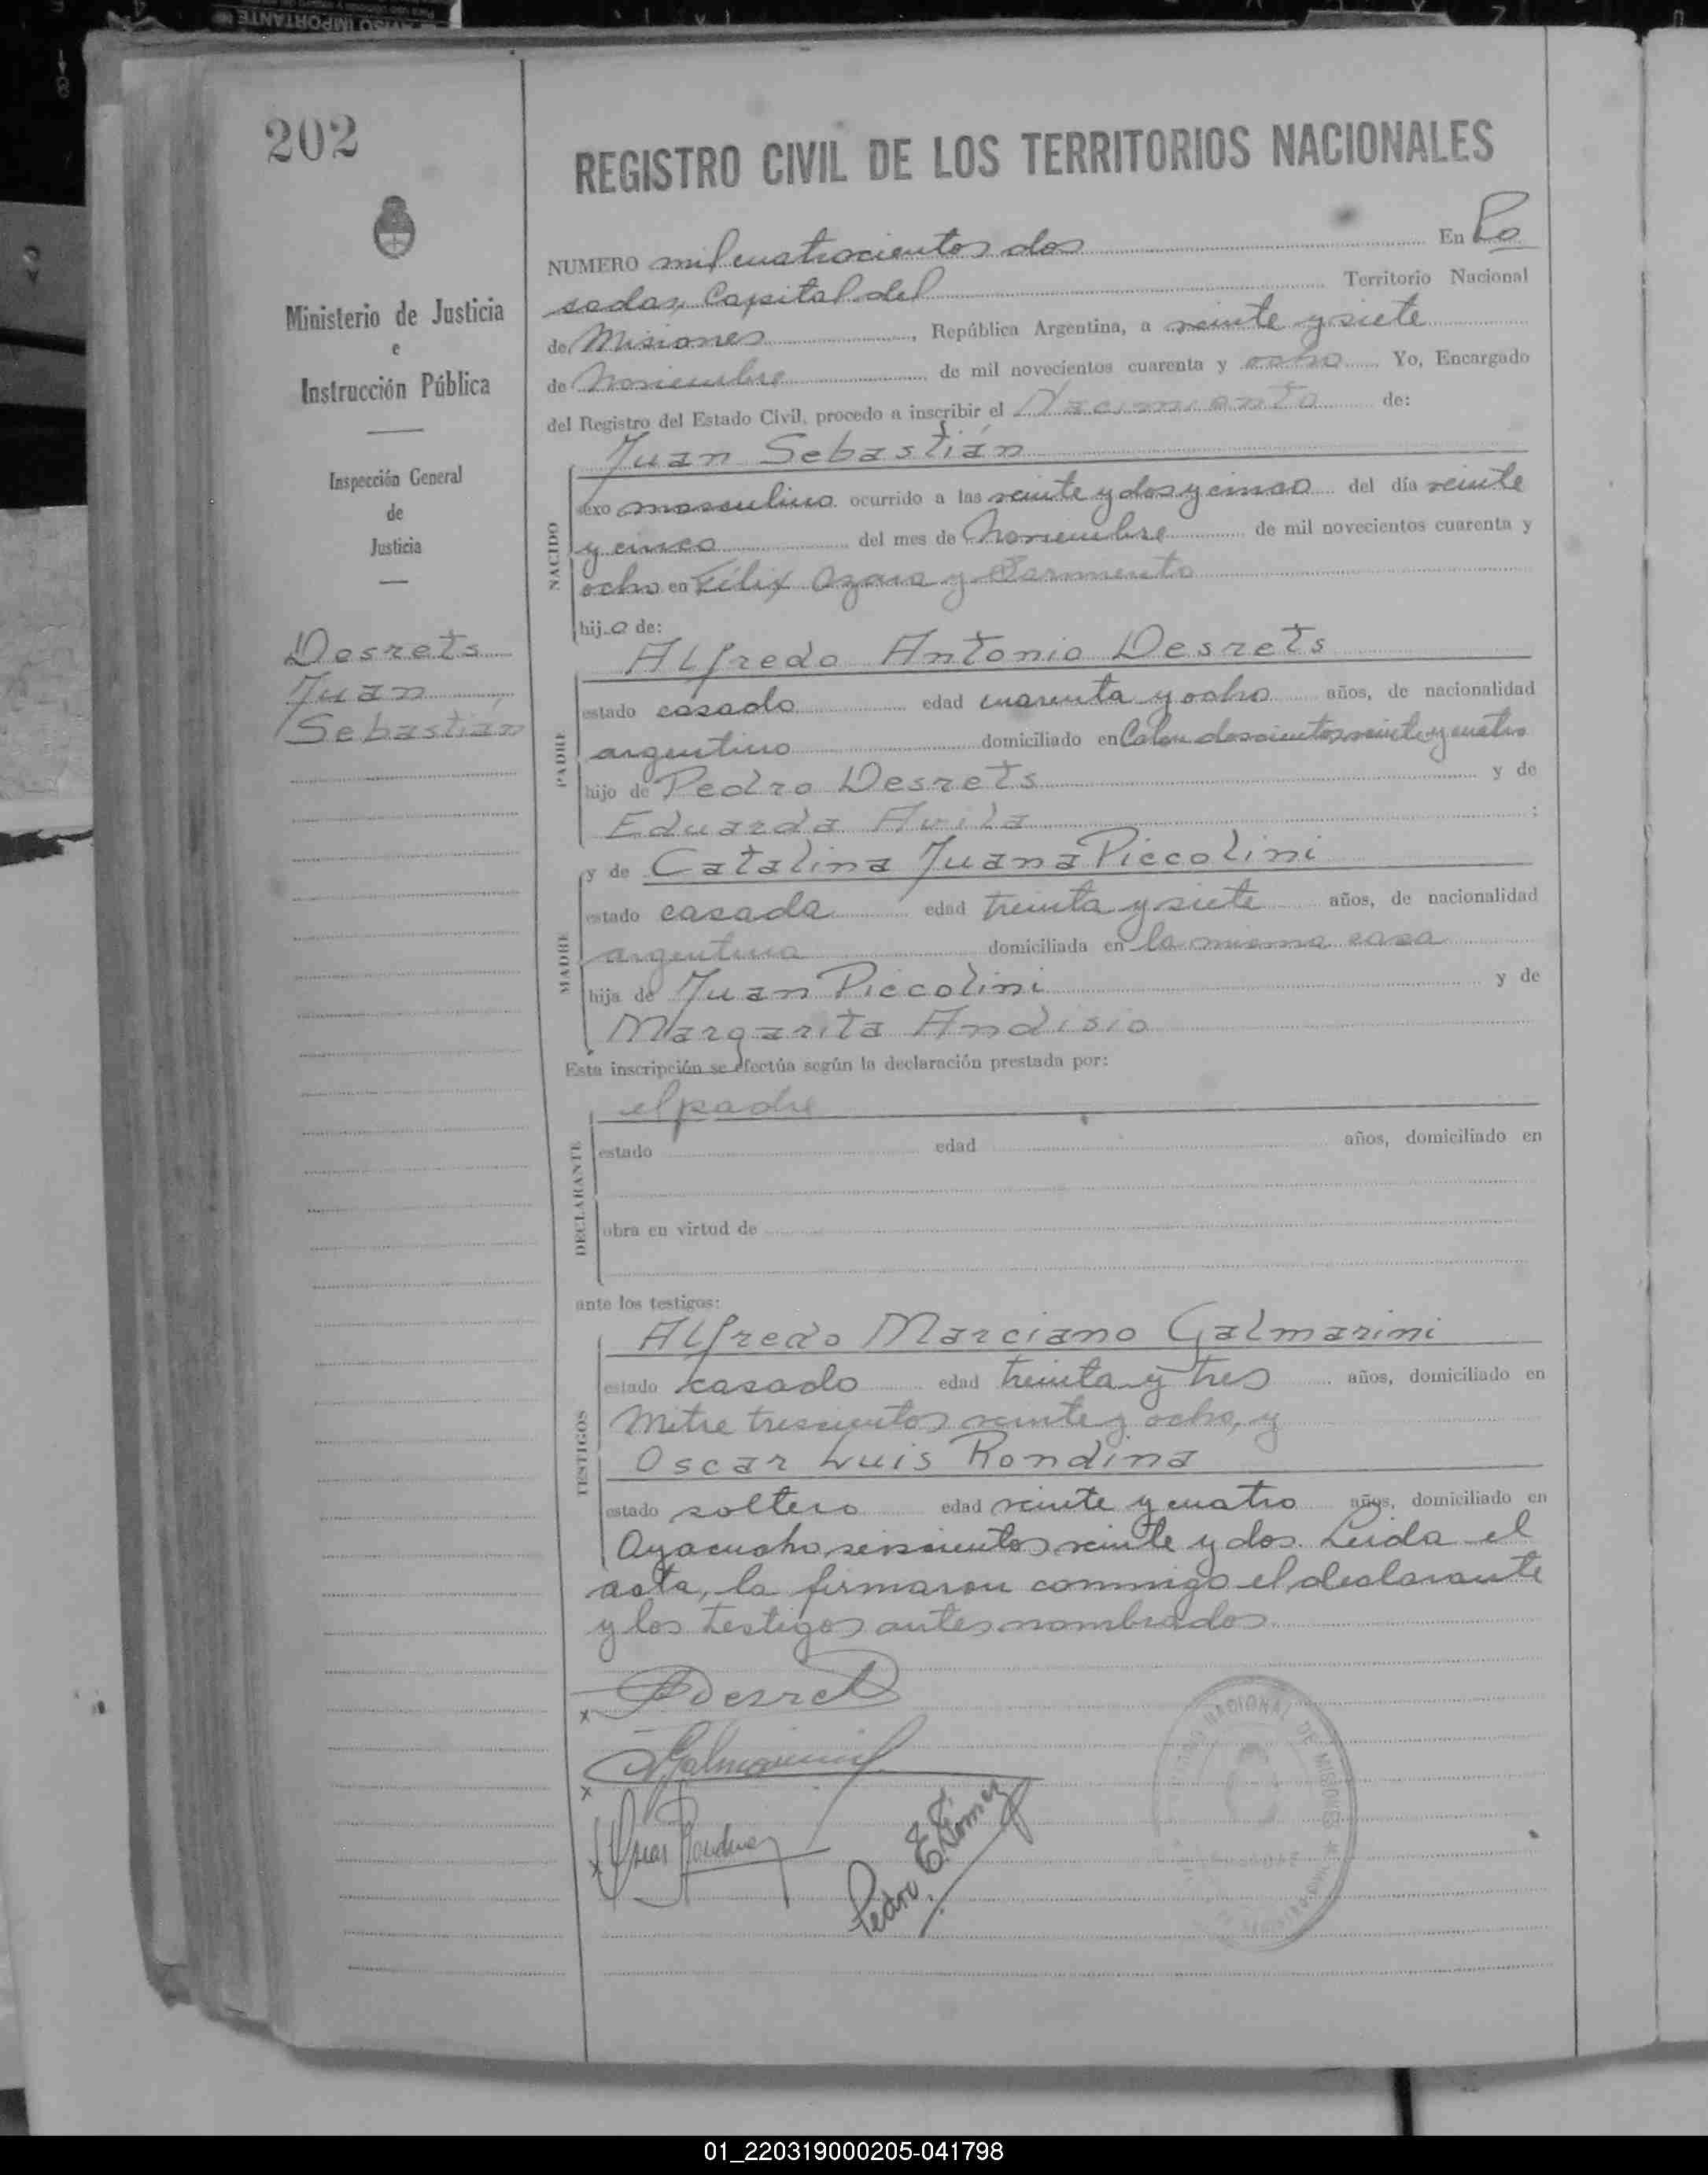 AVISO IMPORTANTE
202
Ministerio de Justicia
e
Instrucción Pública
Inspección General
de
Justicia
Desrets
Juan
Sebastián
REGISTRO CIVIL DE LOS TERRITORIOS NACIONALES
NUMERO mil cuatrocientos dos En Po
sadas, Capital del Territorio Nacional
de Misiones, República Argentina, a veinte y siete
de Noviembre de mil novecientos cuarenta y ocho Yo, Encargado
del Registro del Estado Civil, procedo a inscribir el Nacimiento de:
NACIDO
Juan Sebastián
sexo masculino ocurrido a las veinte y dos y cinco del día veinte
y cinco del mes de Noviembre de mil novecientos cuarenta y
ocho en Félix Azara y Sarmiento
hijo de:
PADRE
Alfredo Antonio Desrets
estado casado edad cuarenta y ocho años, de nacionalidad
argentino domiciliado en Colon doscientos veinte y cuatro
hijo de Pedro Desrets y de
Eduarda Avila ;
MADRE
y de Catalina Juana Piccolini
estado casada edad treinta y siete años, de nacionalidad
argentina domiciliada en la misma casa
hija de Juan Piccolini y de
Margarita Andisio
Esta inscripción se efectúa según la declaración prestada por:
DECLARANTE
el padre
estado edad años, domiciliado en
obra en virtud de
ante los testigos:
TESTIGOS
Alfredo Marciano Galmarini
estado casado edad treinta y tres años, domiciliado en
Mitre trescientos veinte y ocho, y
Oscar Luis Rondina
estado soltero edad veinte y cuatro años, domiciliado en
Ayacucho seiscientos veinte y dos. Leida el
acta, la firmaron conmigo el declarante
y los testigos antes nombrados
x Desrets
x Galmarini
x Oscar Rondina
Pedro E. Gómez
NACIONAL DE MISIONES
01_220319000205-041798